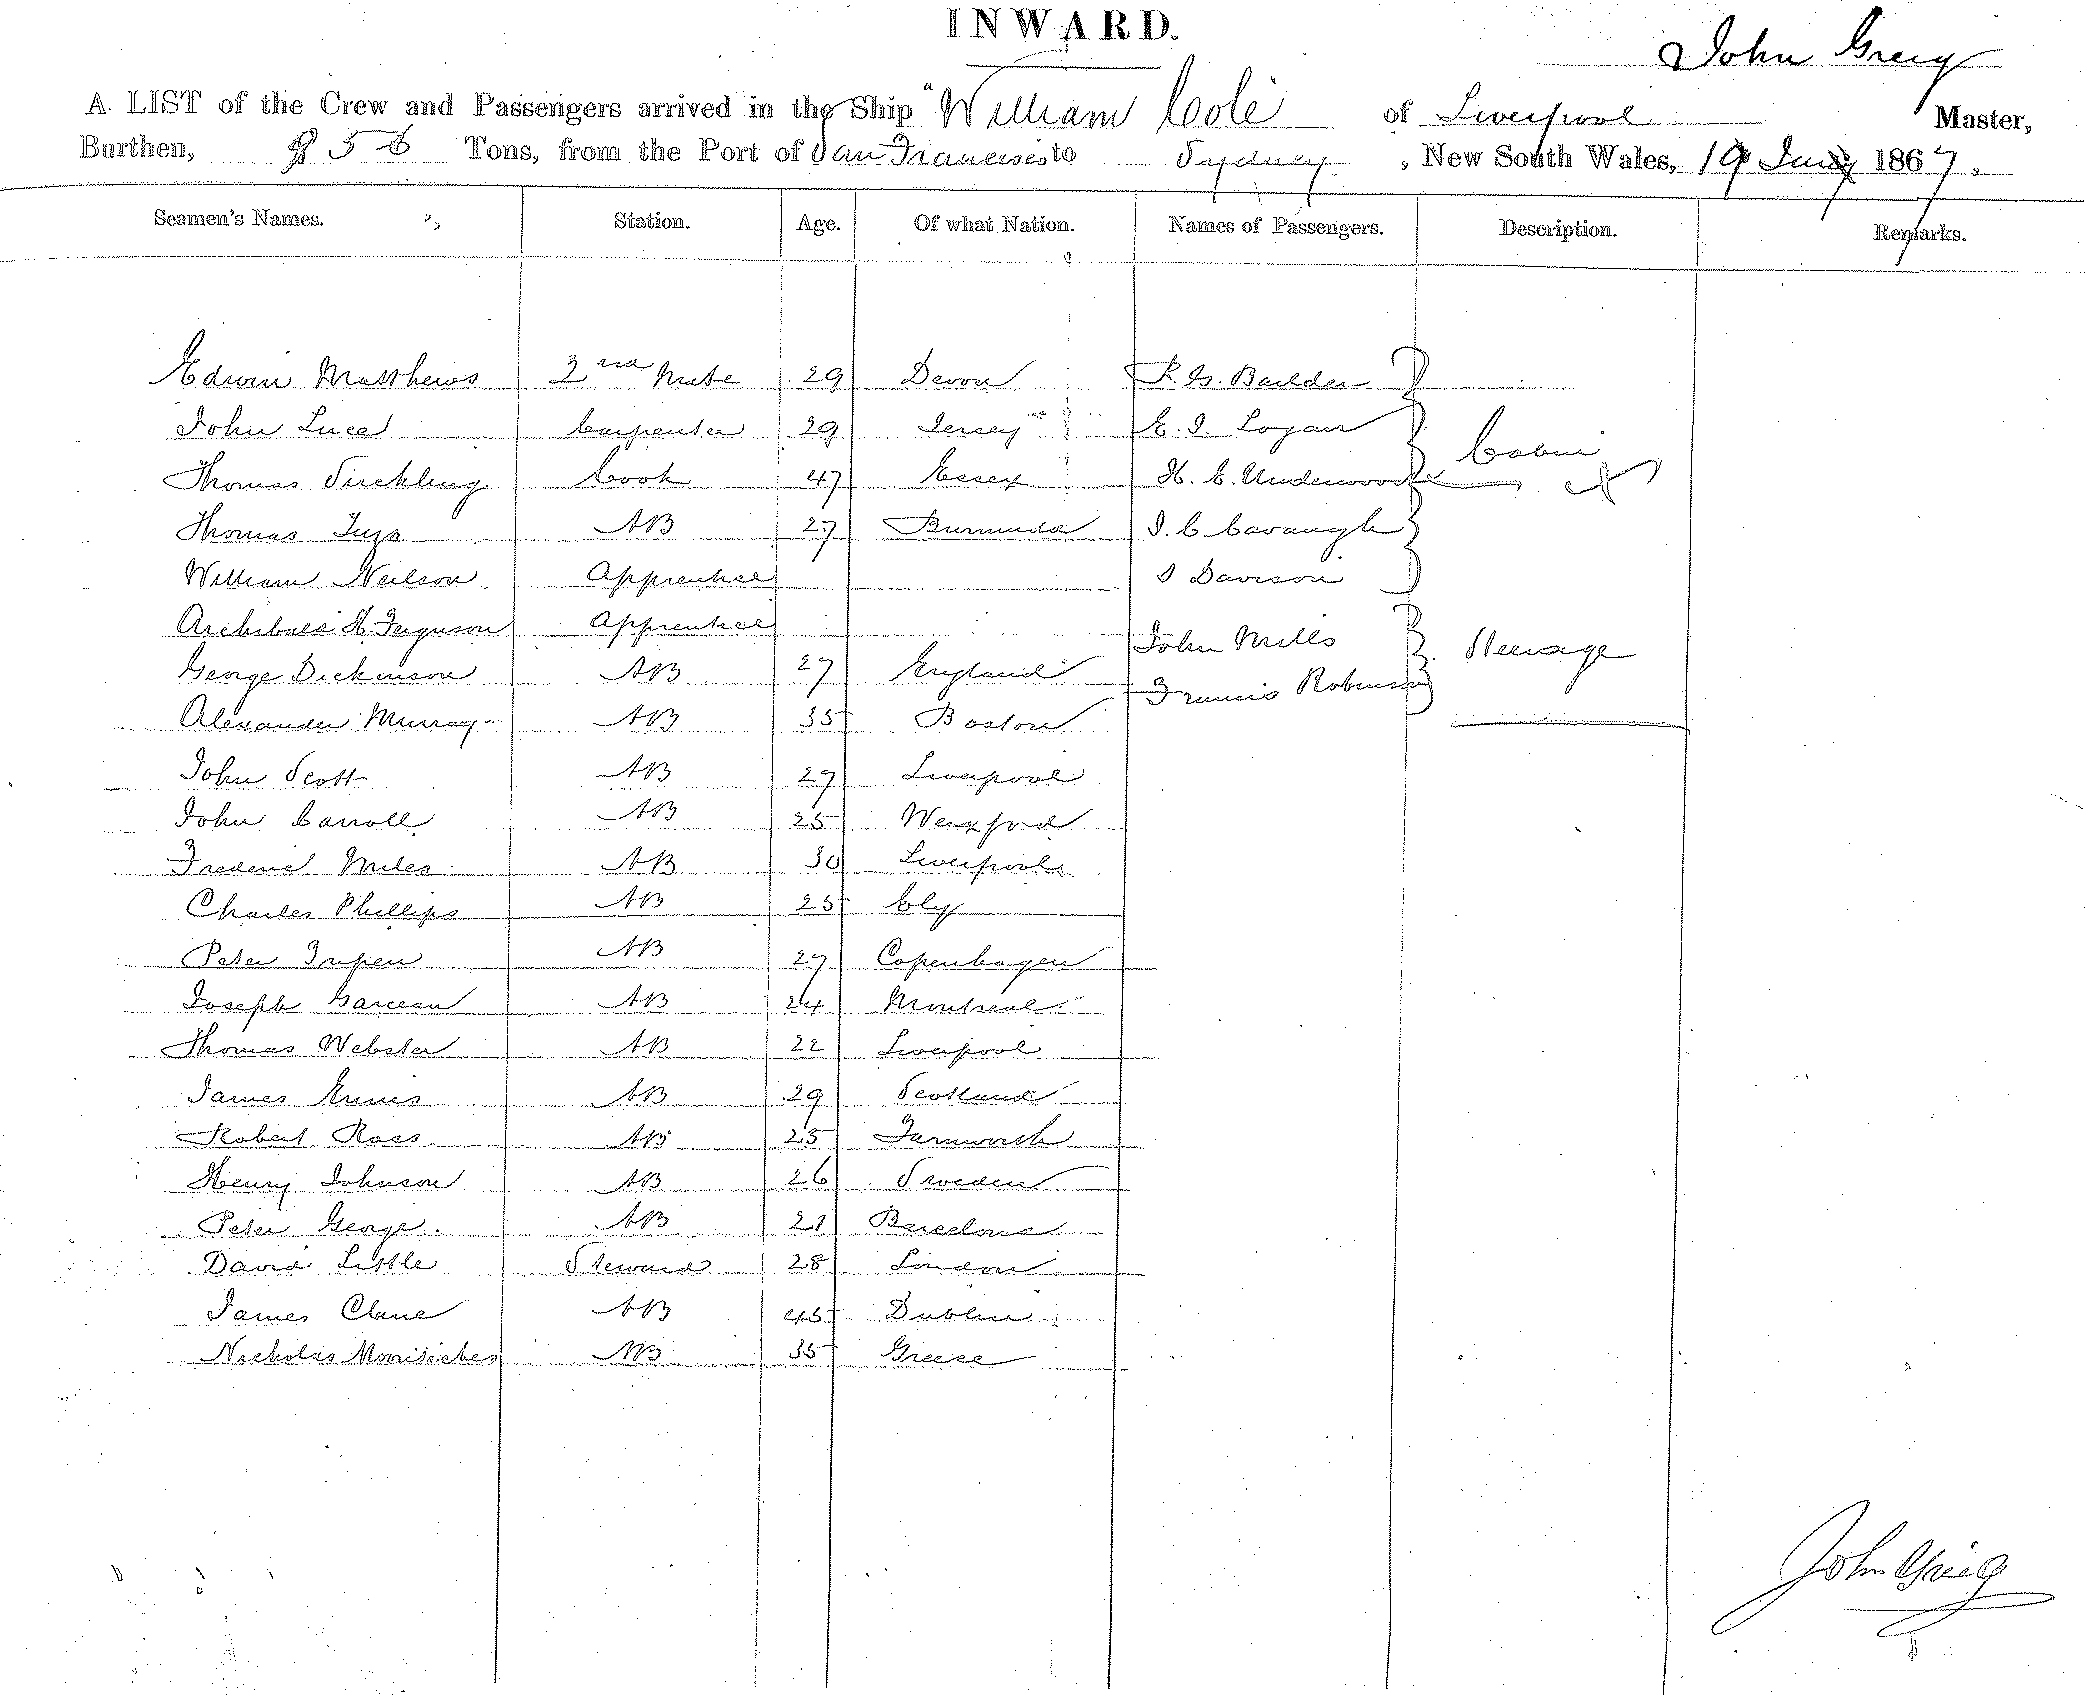 INWARD.
John Greig
A LIST of the Crew and Passengers arrived in the Ship "William Cole of Liverpool Master,
Burthen, Tons, from the Port of San Francisco to Sydney, New South Wales, 19 1867.
Seamen's Names. Station. Age. Of what Nation. Names of Passengers. Description. Remarks.
Edwin Matthews 2nd Mate 29 Devon
John Luce Carpenter 29 Jersey E. I. Logan Cabin
Thomas Cook 47 Essex H. C. Underwood
Thomas AB 27 I. C. Cavanagh
William Neilson Apprentice Davison
Archibald H Ferguson Apprentice
John Mills Steerage
George Dickinson AB 27 England
Francis Robinson
Alexander Murray AB 35 Boston
John Scott AB 27 Liverpool
John Carroll AB 25 Wexford
Miles AB 30 Liverpool
Charles Phillips AB 25
Peter AB 27 Copenhagen
Joseph Garceau AB 24 Montreal
Thomas Webster AB 22 Liverpool
James Ennis AB 29 Scotland
Robert Ross AB 25
Henry Johnson AB 26 Sweden
Peter George AB 21 Barcelona
David Little Steward 28 London
James AB 45 Dublin
Nicholas AB 35 Greese
John Greig